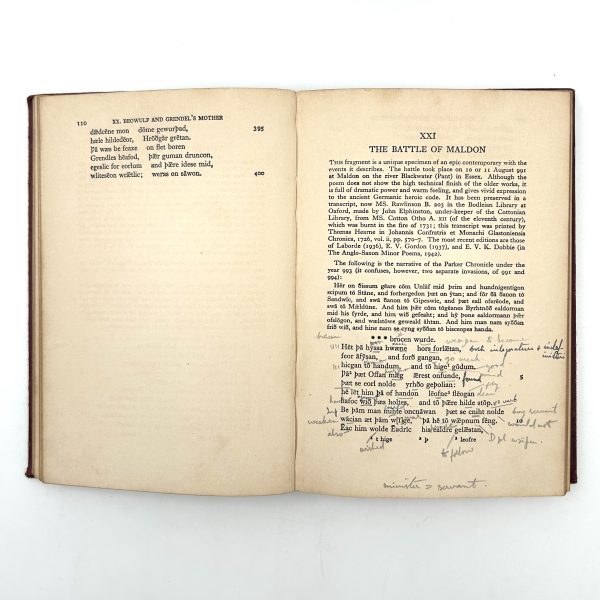 110 XX. BEOWULF AND GRENDEL'S MOTHER
dǣdcēne mon dōme gewurþad,
hæle hildedēor, Hrōðgār grētan. 395
Þā wæs be feaxe on flet boren
Grendles hēafod, þǣr guman druncon,
egeslic for eorlum and þǣre idese mid,
wlitesēon wrǣtlic; weras on sāwon. 400
XXI
THE BATTLE OF MALDON
THIS fragment is a unique specimen of an epic contemporary with the
events it describes. The battle took place on 10 or 11 August 991
at Maldon on the river Blackwater (Pant) in Essex. Although the
poem does not show the high technical finish of the older works, it
is full of dramatic power and warm feeling, and gives vivid expression
to the ancient Germanic heroic code. It has been preserved in a
transcript, now MS. Rawlinson B. 203 in the Bodleian Library at
Oxford, made by John Elphinston, under-keeper of the Cottonian
Library, from MS. Cotton Otho A. XII (of the eleventh century),
which was burnt in the fire of 1731; this transcript was printed by
Thomas Hearne in Johannis Confratris et Monachi Glastoniensis
Chronica, 1726, vol. ii, pp. 570-7. The most recent editions are those
of Laborde (1936), E. V. Gordon (1937), and E. V. K. Dobbie (in
The Anglo-Saxon Minor Poems, 1942).
The following is the narrative of the Parker Chronicle under the
year 993 (it confuses, however, two separate invasions, of 991 and
994):
Hēr on ðissum gēare cōm Unlāf mid þrim and hundnigontigon
scipum tō Stāne, and forhergedon þæt on ȳtan; and fōr ðā ðanon tō
Sandwīc, and swā ðanon tō Gipeswic, and þæt eall oferēode, and
swā tō Mǣldūne. And him þǣr cōm tōgēanes Byrhtnōð ealdorman
mid his fyrde, and him wið gefeaht; and hȳ þone ealdormann þǣr
ofslōgon, and wælstōwe geweald āhtan. And him man nam syððan
frið wið, and hine nam se cyng syððan tō bisceopes handa.
* * * brocen wurde.
Hēt þā hyssa hwæne hors forlǣtan, both
feor āfȳsan, and forð gangan, go
hicgan tō handum, and tō hige¹ gōdum. good
Þā² þæt Offan mǣg ǣrest onfunde, found 5
þæt se eorl nolde yrhðo geþolian:
hē lēt him þā of handon lēofne³ flēogan
hafoc wið þæs holtes, and tō þǣre hilde stōp. verb
Be þām man mihte oncnāwan þæt se cniht nolde boy servant
weaken wācian æt þām wīge, þā hē tō wǣpnum fēng. 10 would not
also Ēac him wolde Ēadrīc his ealdre gelǣstan,
¹ t hige ² þ ³ leofre
wished
to follow
minister = servant.